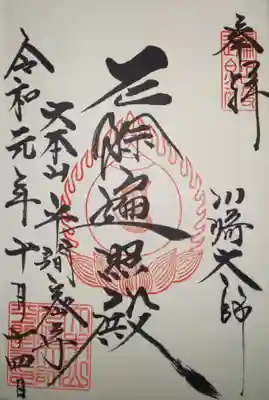 奉拝
川崎大師
厄除遍照殿
大本山 平間寺
令和元年十月廿四日